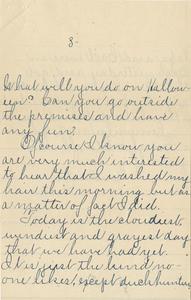 3-
What will you do on Hallow-
een? Can you go outside
the premises and have
any fun?
Of course I know you
are very much interested
to hear that I washed my
hair this morning but as
a matter of fact I did.
Today is the cloudiest
windiest and grayest day
that we have had yet.
It is just the kind no-
one likes, except duck hunters